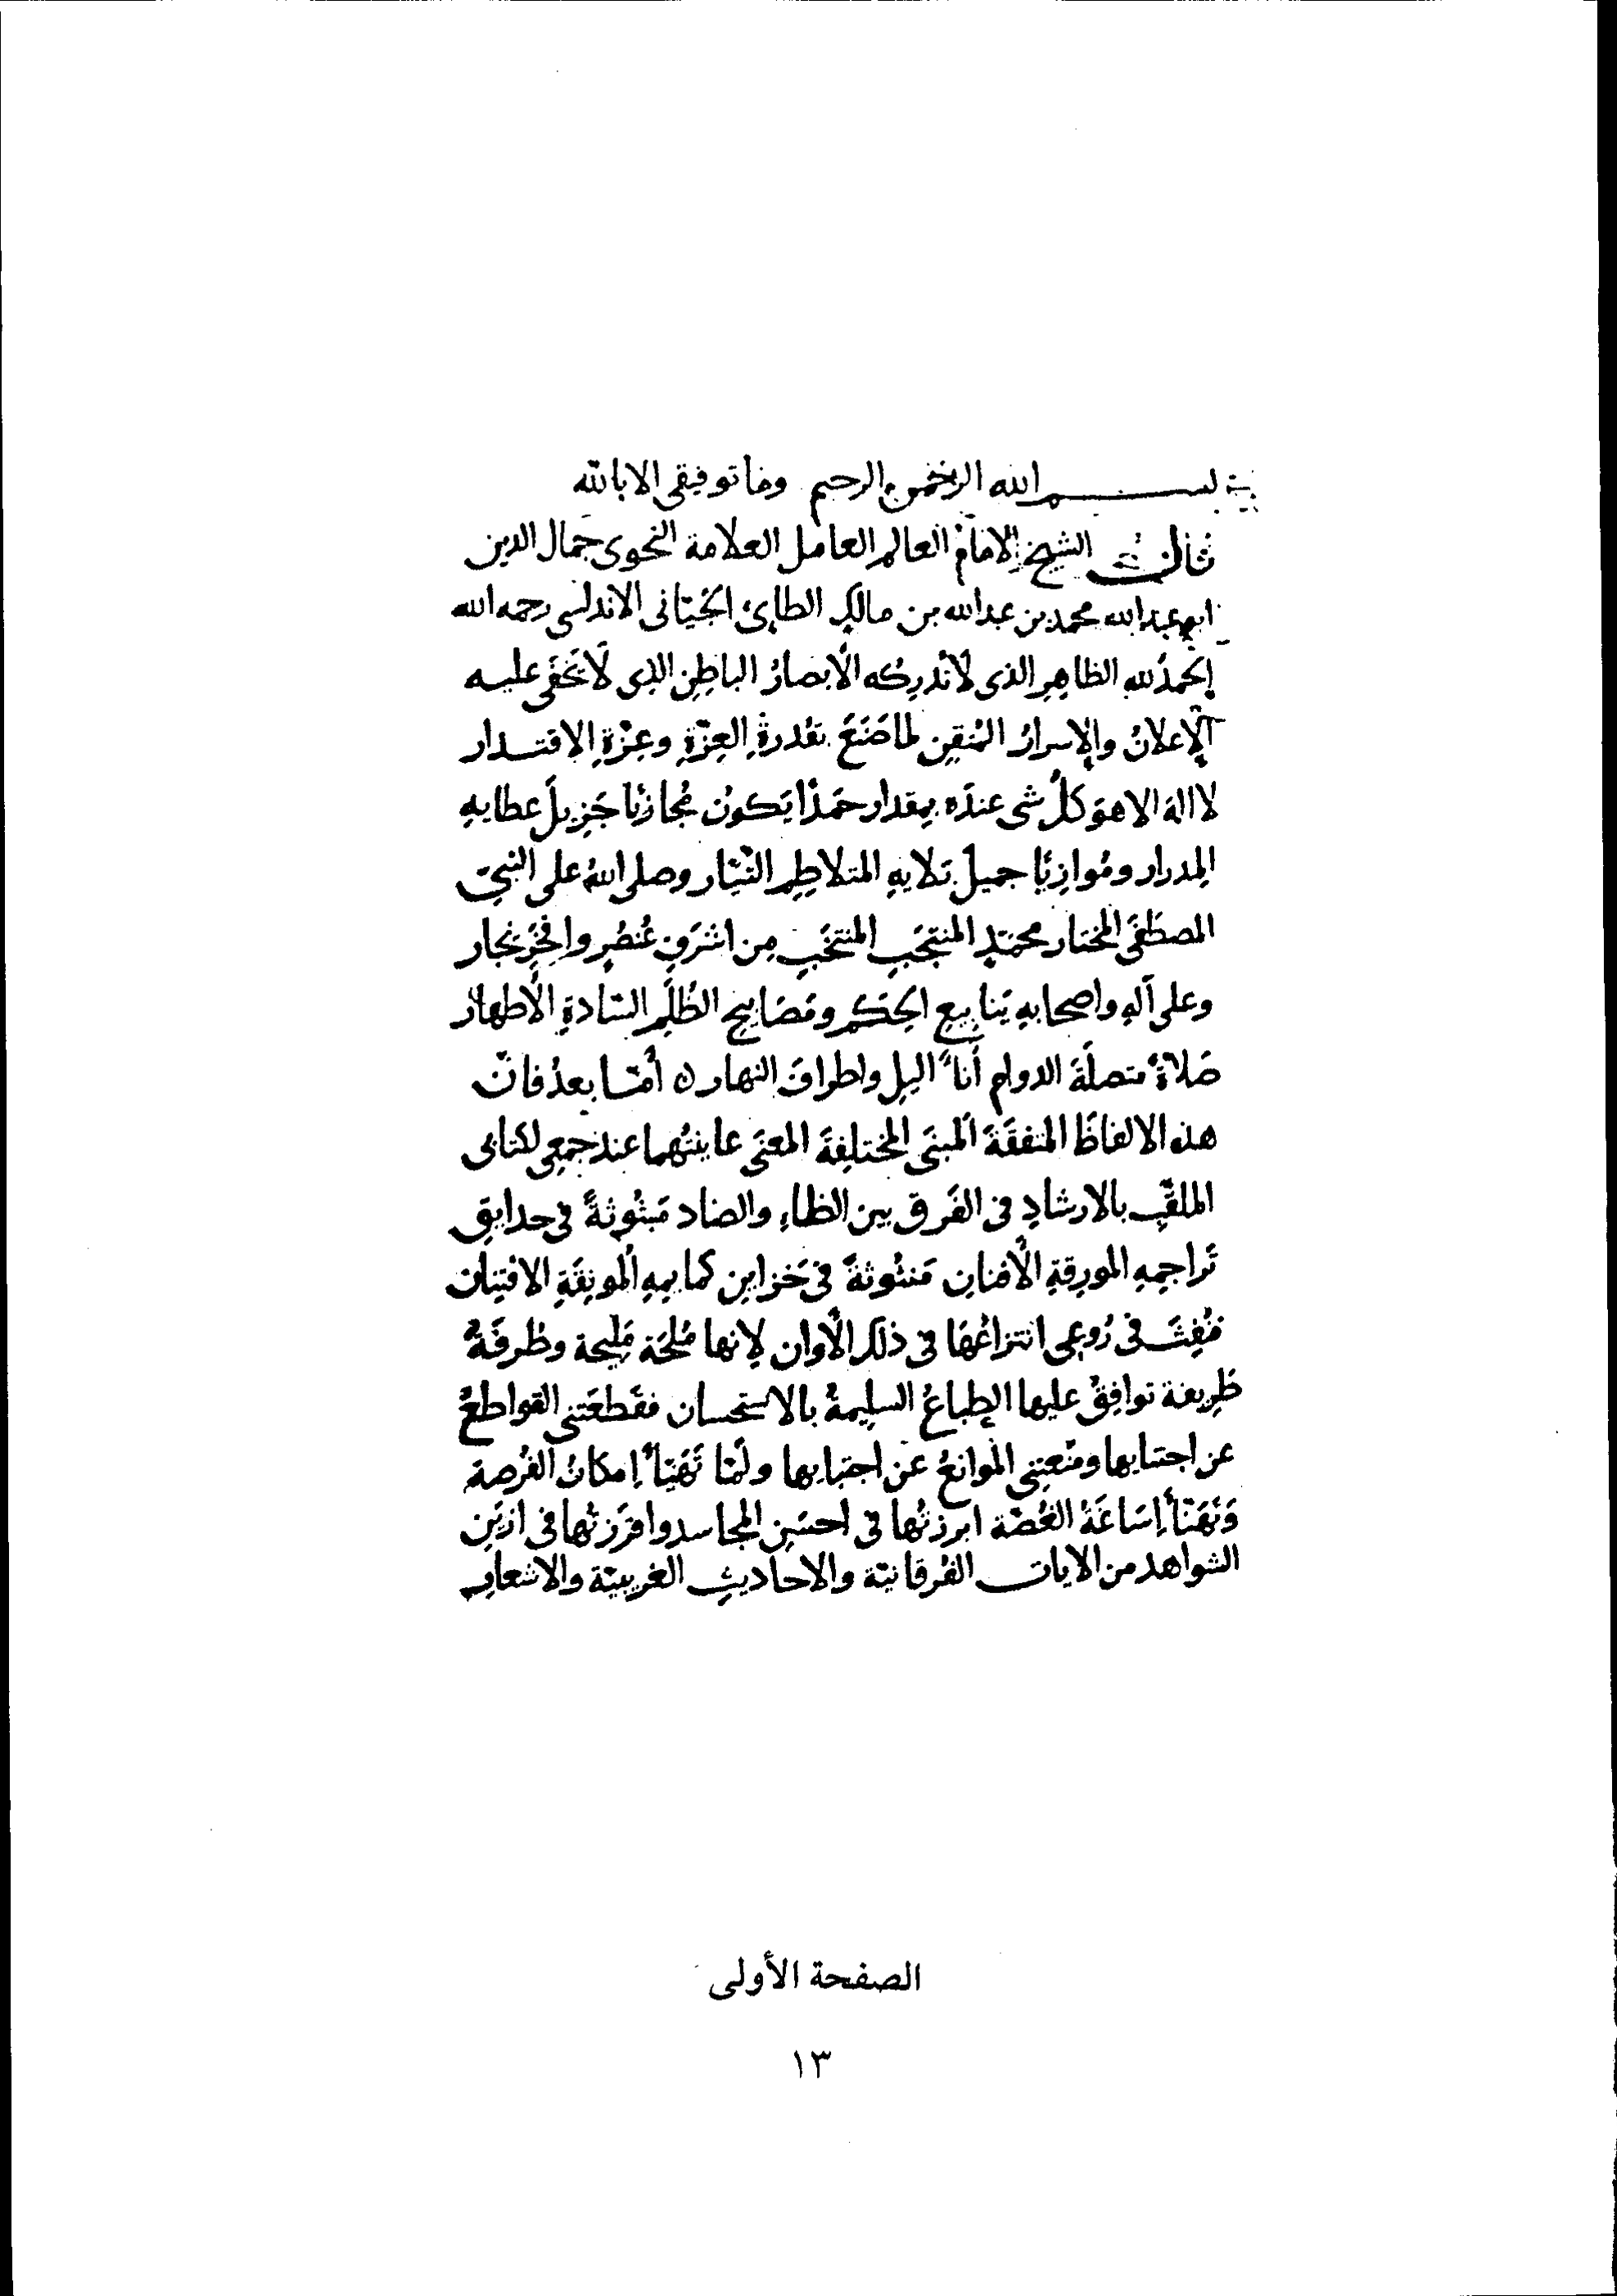 بسم الله الرحمن الرحيم وما توفيقى الا بالله
قال الشيخ الامام العالم العامل العلامة النحوى جمال الدين
ابو عبدالله محمد بن عبدالله بن مالك الطائ الجيّانى الاندلسى رحمه الله
الحمدُ للهِ الظاهِرِ الذى لَا تُدرِكه الأبصارُ الباطِنِ الذى لَا يَخفَى عليه
الإعلانُ والإسرارُ المُتقِنِ لما صَنَعَ بقُدرةِ العِزّةِ وعِزّةِ الاقتدار
لا اله الا هوَ كلُّ شى عندَه بِمقدار حَمدًا يَكونُ مُجازيًا جَزِيلَ عطايهِ
المِدرار ومُوازِيًا جميلَ بَلايهِ المتلاطِمِ التيّار وصلى اللهُ على النبىّ
المصطَفَى المختار محمّدٍ المنتجَبِ المنتخَبِ مِن اشرَفِ عُنصُرٍ وافخَرِ نِجار
وعلى آلهِ واصحابهِ يَنابِيعِ الحِكَمِ ومَصَابيحِ الظُلَمِ السّادةِ الأطهار
صَلاةً متصلةَ الدوامِ آناءَ اليلِ واطرافَ النهار ه أمّا بعدُ فانّ
هذه الالفاظَ المتفقَةَ المبنَى المختلِفةَ المعنَى عاينتُهما عند جمعِى لكتابى
الملقّبِ بالارشادِ فى الفَرق بين الظاءِ والضاد مَبثُوثةً فى حدايقِ
تَراجِمِهِ المورِقةِ الأفنانِ مَنثُوثةً فى خَزاينِ كمايمهِ المونِقَةِ الافتِنان
فنُفِثَ فى رُوعِى انتزاعُهَا فى ذلك الأوان لِانها مُلحَة مَلِيحة وظُرفَةٌ
ظَرِيفة توافِقُ عليها الطِباعُ السليمةُ بالاستحسان فقَطعَتنى القواطعُ
عن اجتنابها ومنَعتِنى الموانعُ عن اجتبايها ولَمّا تَهَيّأ إمكانُ الفُرصة
وَتَهَنّأ إسَاغَةُ الغُصّة ابرزتُها فى احسَنِ المجاسد وافرَزتُها فى ازيَنِ
الشواهد من الايات الفُرقانيّة والاحاديثِ الغريبيّة والاشعارِ
الصفحة الأولى
١٣